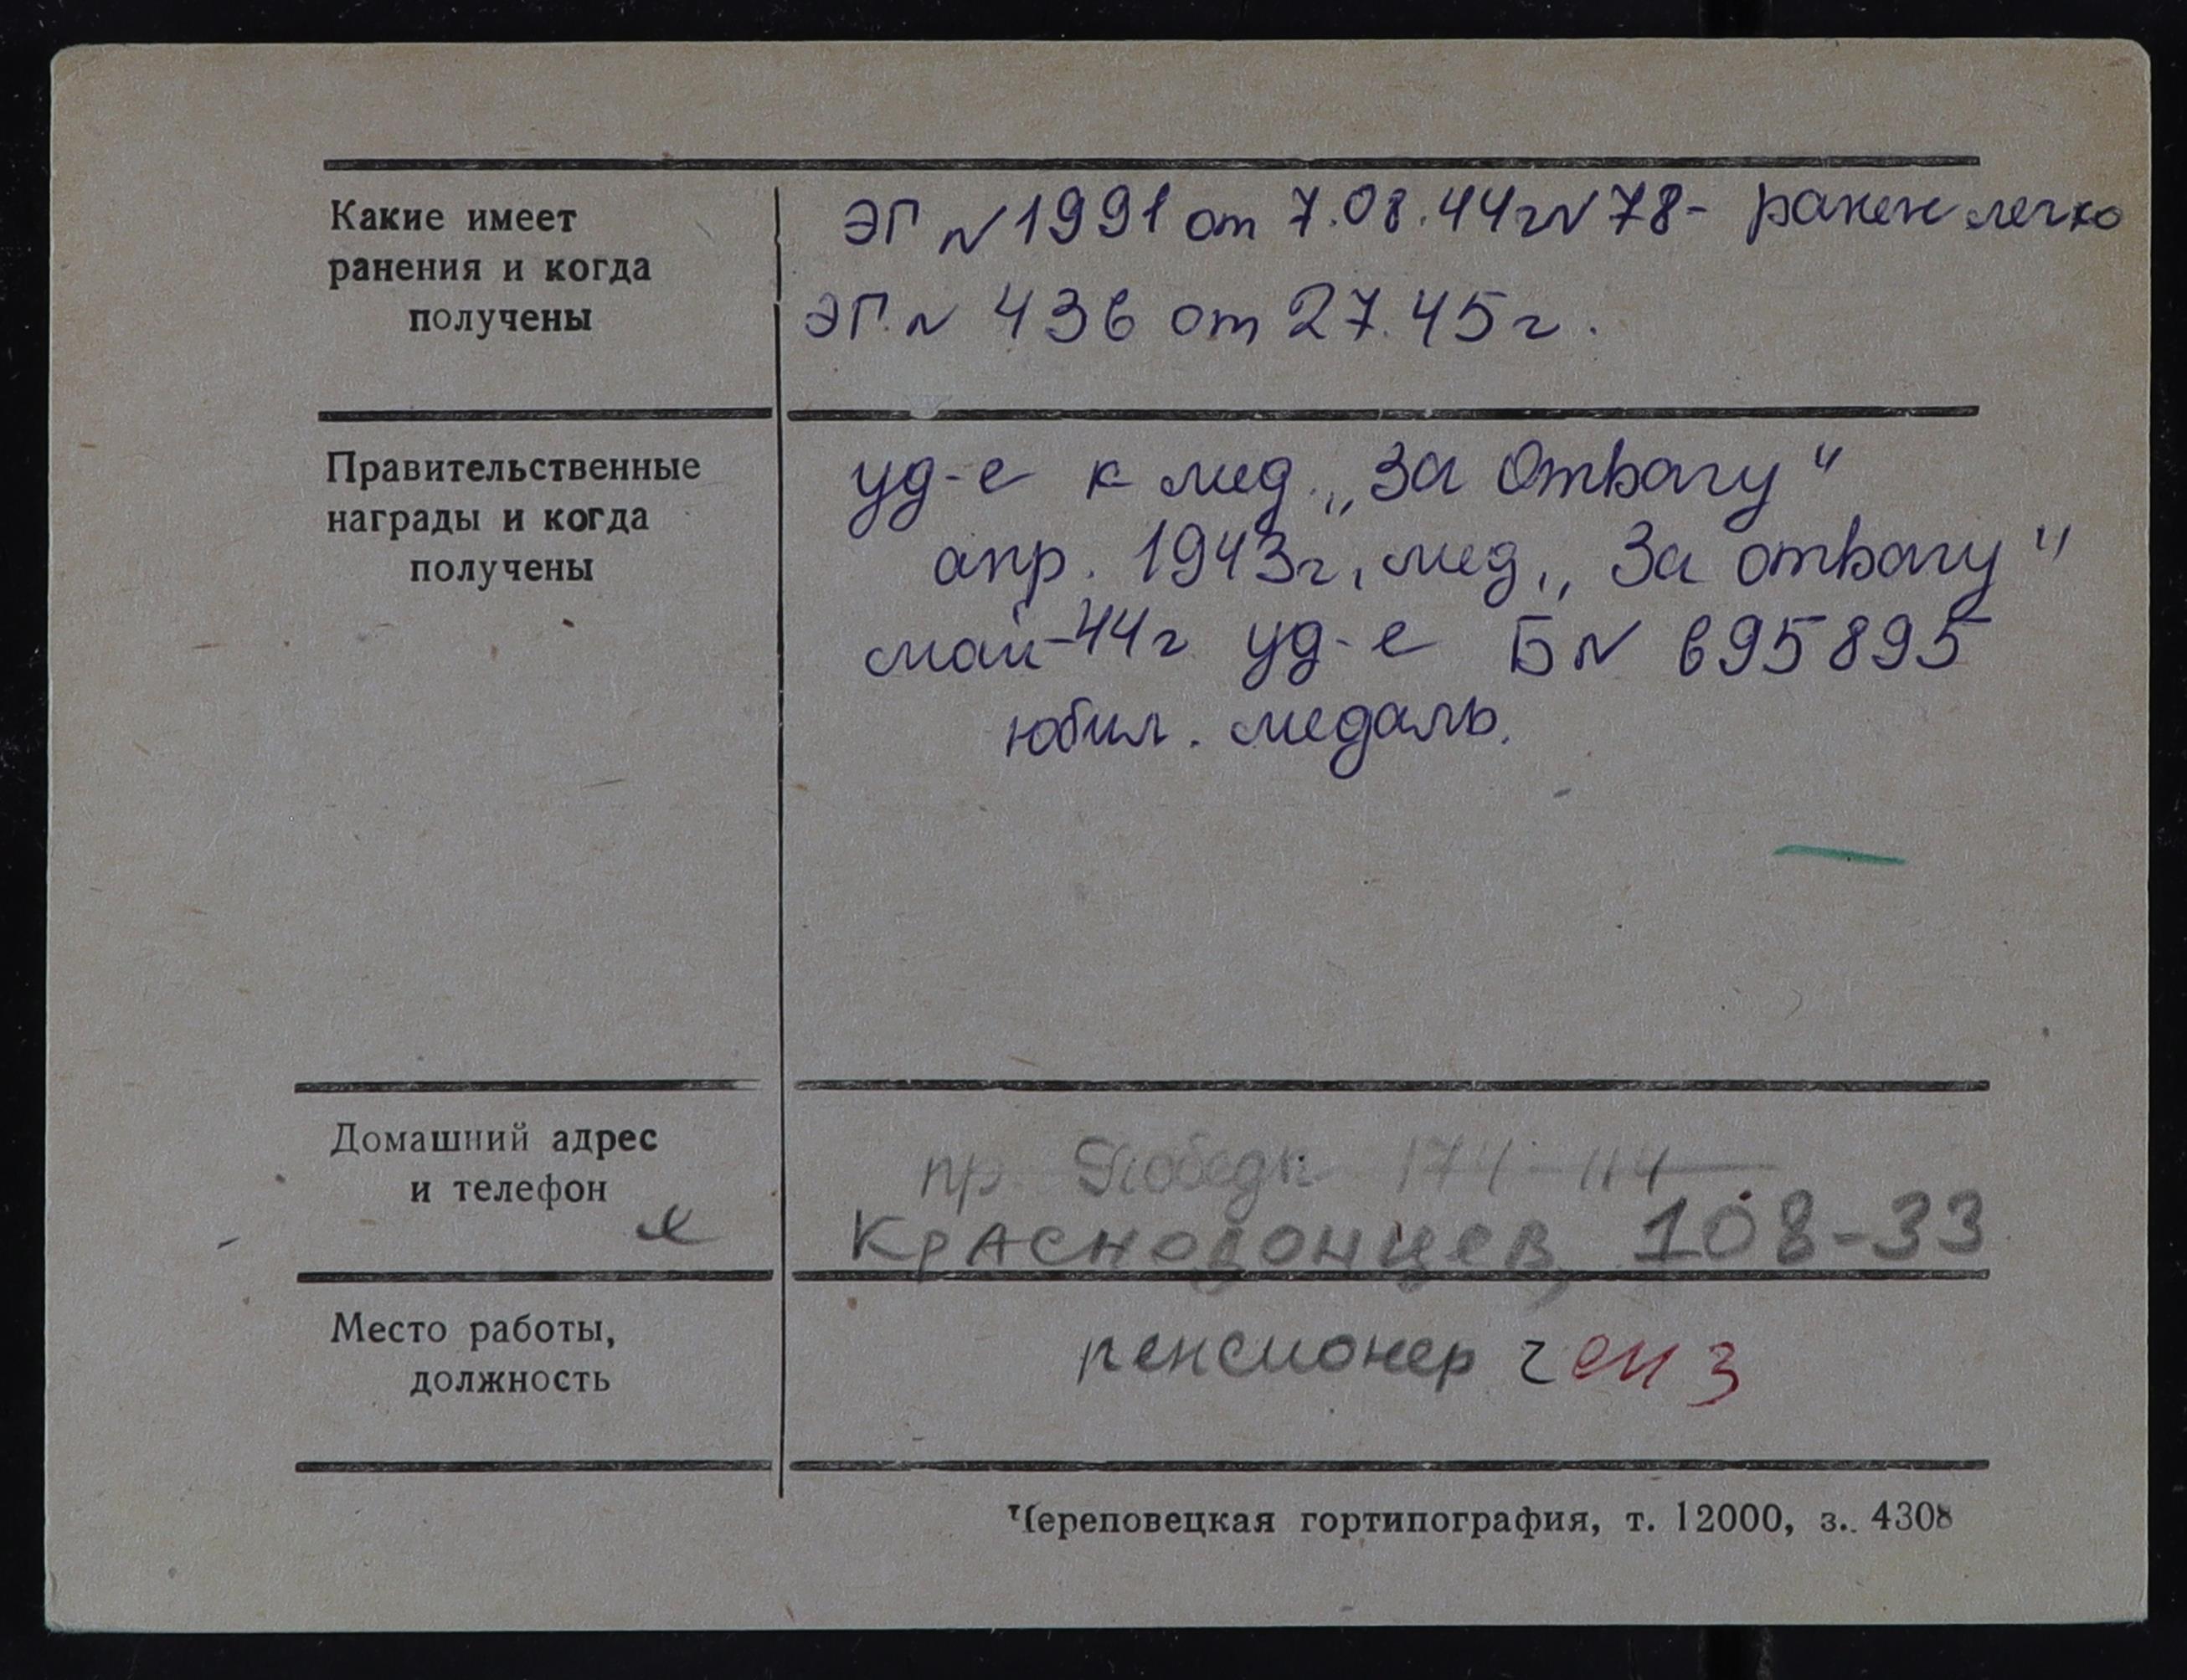 Какие имеет
ранения и когда
получены
ЭГ N 1991 от 7.08.44г N 78 - ранен легко
ЭГ. N 436 от 27.45г.
Правительственные
награды и когда
получены
уд-е к мед. „За Отвагу"
апр. 1943г, мед. „За отвагу"
май-44г уд-е Б N 695895
юбил. медаль.
Домашний адрес
и телефон
пр. Победы 174-114
Краснодонцев, 108-33
Место работы,
должность
пенсионер
Череповецкая гортипография, т. 12000, з. 4308